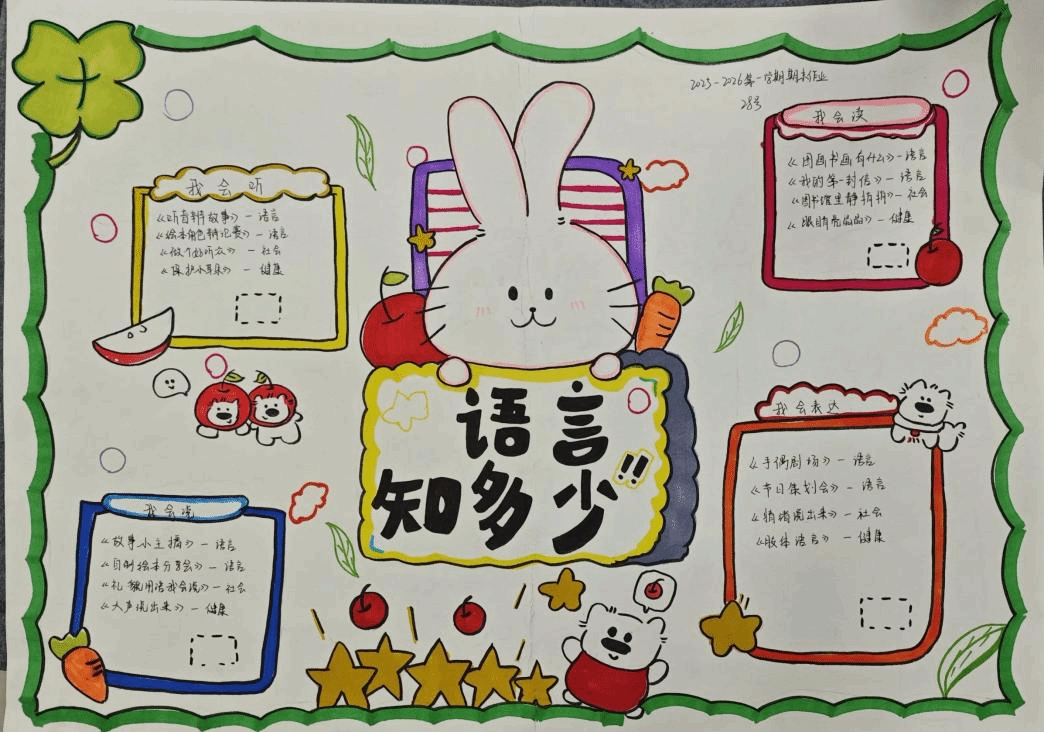 2025-2026第一学期期末作业
28号
我会听
《听音辨故事》-语言
《绘本角色辩论赛》-语言
《做个好听众》-社会
《保护小耳朵》-健康
我会读
《图画书画有什么》-语言
《我的第一封信》-语言
《图书馆里静悄悄》-社会
《眼睛亮晶晶》-健康
语言
知多少!!
我会说
《故事小主播》-语言
《自制绘本分享会》-语言
《礼貌用语我会说》-社会
《大声说出来》-健康
我会表达
《手偶剧场》-语言
《节日策划会》-语言
《情绪说出来》-社会
《肢体语言》-健康